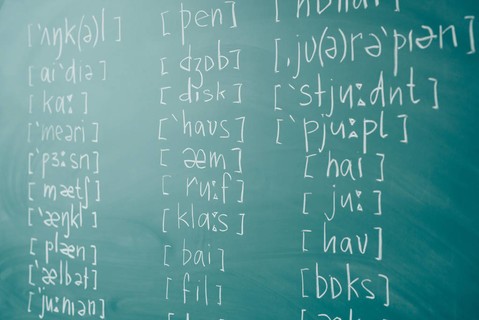 [ˈʌŋk(ə)l]
[aiˈdiə]
[kaː]
[ˈmeəri]
[ˈpɜːsn]
[mætʃ]
[ˈæŋkl]
[plæn]
[ˈælbət]
[ˈjuːniən]
[pen]
[dʒɒb]
[disk]
[ˈhaʊs]
[æm]
[ruːf]
[klaːs]
[bai]
[fil]
[ˌjʊ(ə)rəˈpɪən]
[ˈstjuːdnt]
[ˈpjuːpl]
[haɪ]
[juː]
[haʊ]
[bɒks]